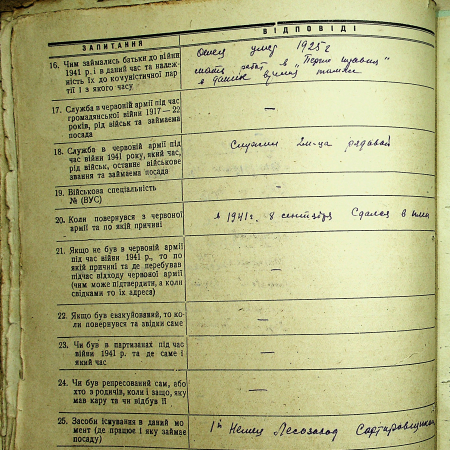 ЗАПИТАННЯ
ВІДПОВІДІ
16. Чим займались батьки до війни
1941 р. і в даний час та належ-
ність їх до комуністичної пар-
тії і з якого часу
Отец умер 1925 г
мать
в данное время
17. Служба в червоній армії під час
громадянської війни 1917—22
років, рід військ та займаєма
посада
—
18. Служба в червоній армії під
час війни 1941 року, який час,
рід військ, останнє військове
звання та займаєма посада
Служил 2м-ца рядовой
19. Військова спеціальність
№ (ВУС)
—
20. Коли повернувся з червоної
армії та по якій причині
в 1941 г. 8 сентября Сдался в плен
21. Якщо не був в червоній армії
під час війни 1941 р., то по
якій причині та де перебував
підчас відходу червоної армії
(чим може підтвердити, а коли
свідками то їх адреса)
—
22. Якщо був евакуйований, то ко-
ли повернувся та звідки саме
—
23. Чи був в партизанах під час
війни 1941 р. та де саме і
який час
—
24. Чи був репресований сам, або
хто з родичів, коли і защо, яку
мав кару та чи відбув її
—
25. Засоби існування в даний мо-
мент (де працює і яку займає
посаду)
1й Немец Лесозавод Сортировщиком